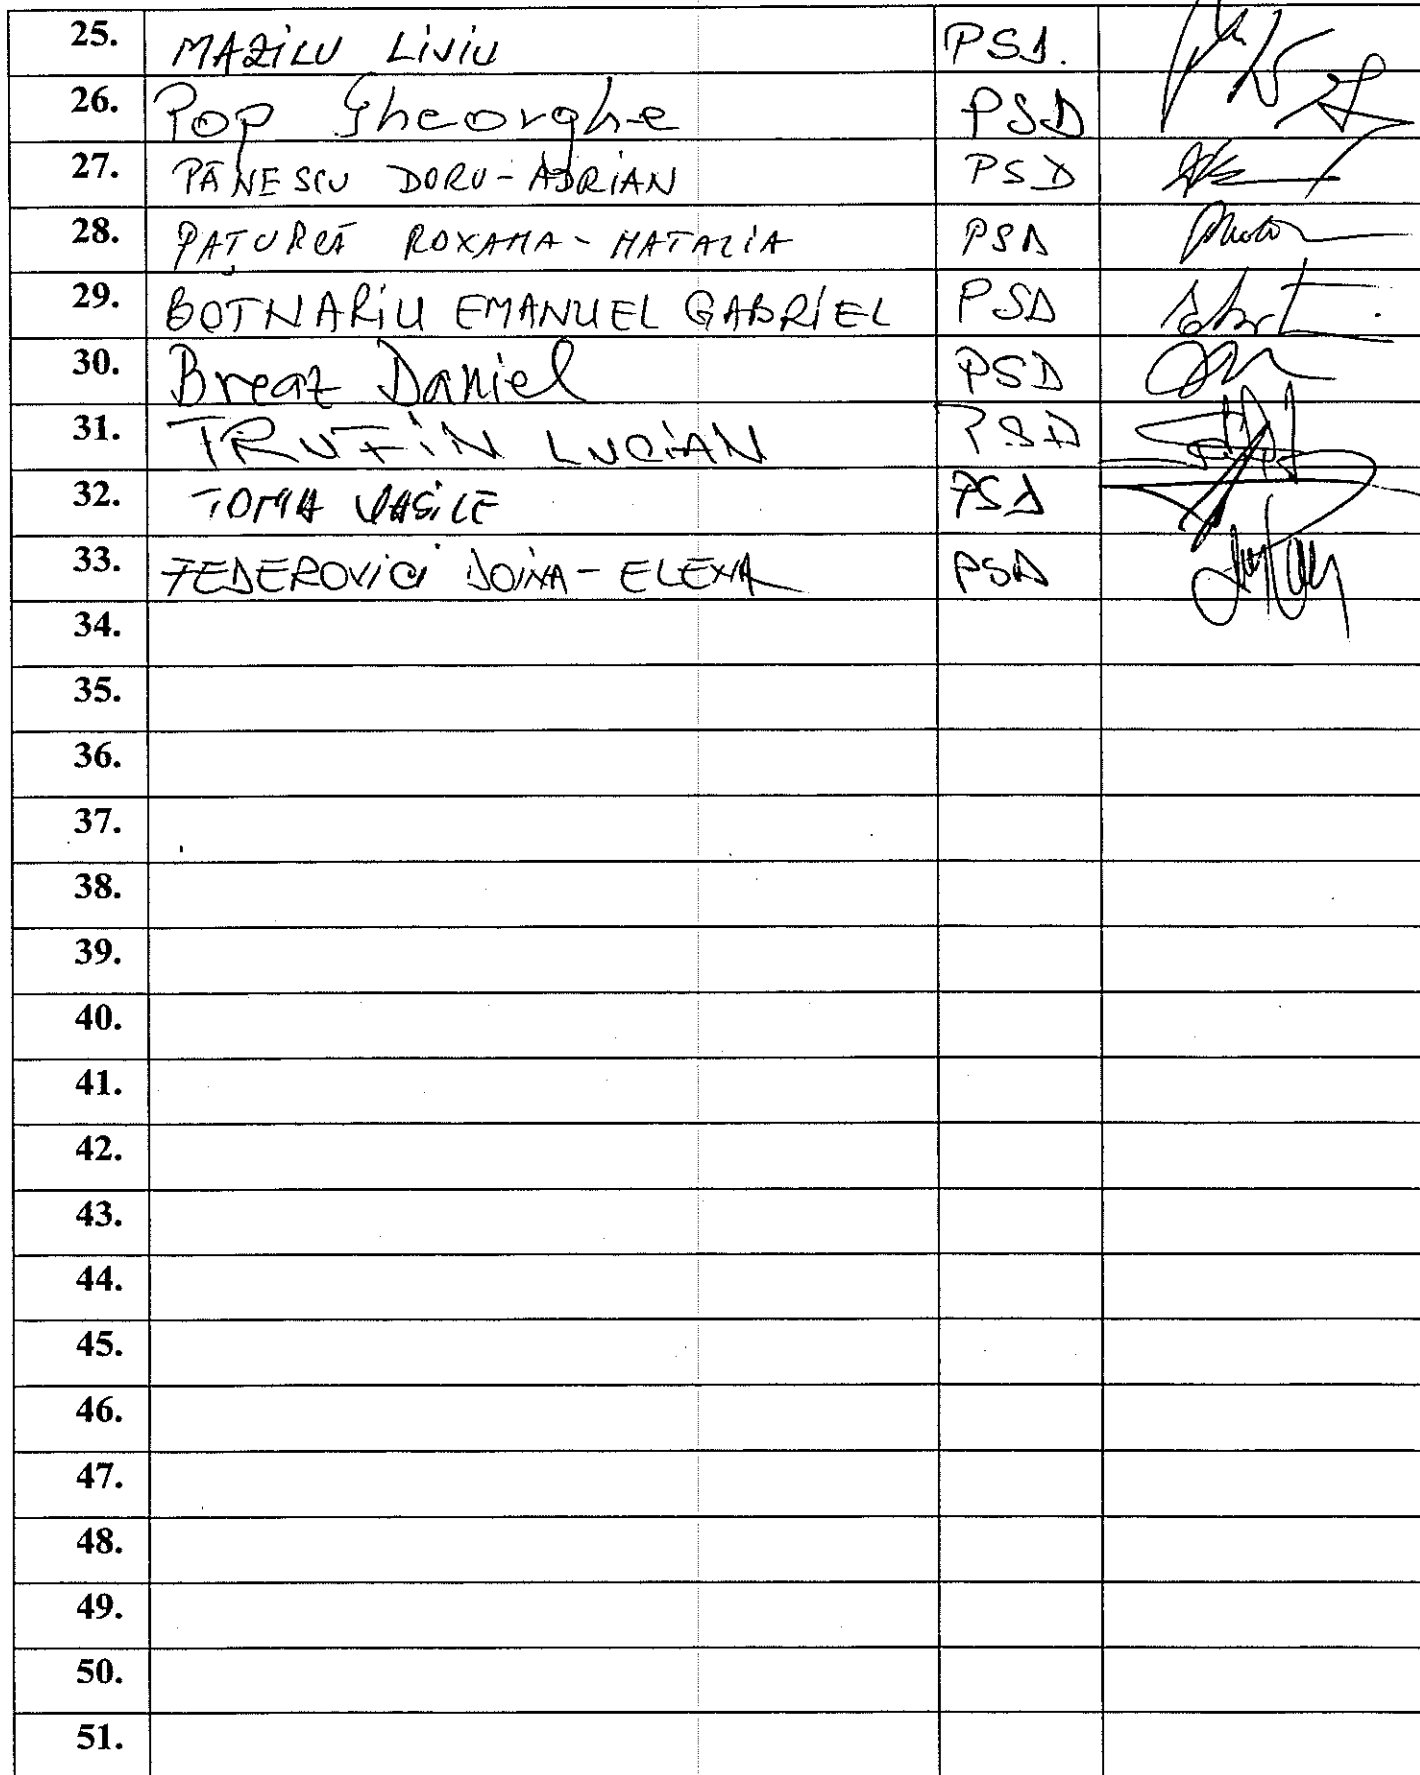 25. MAZILU LIVIU PSD.
26. Pop Gheorghe PSD
27. PĂNESCU DORU-ADRIAN PSD
28. PAȚURCĂ ROXANA-NATALIA PSD
29. BOTNARIU EMANUEL GABRIEL PSD
30. Breaz Daniel PSD
31. TRUFIN LUCIAN PSD
32. TOMA VASILE PSD
33. FEDEROVICI DOINA-ELENA PSD
34.
35.
36.
37.
38.
39.
40.
41.
42.
43.
44.
45.
46.
47.
48.
49.
50.
51.